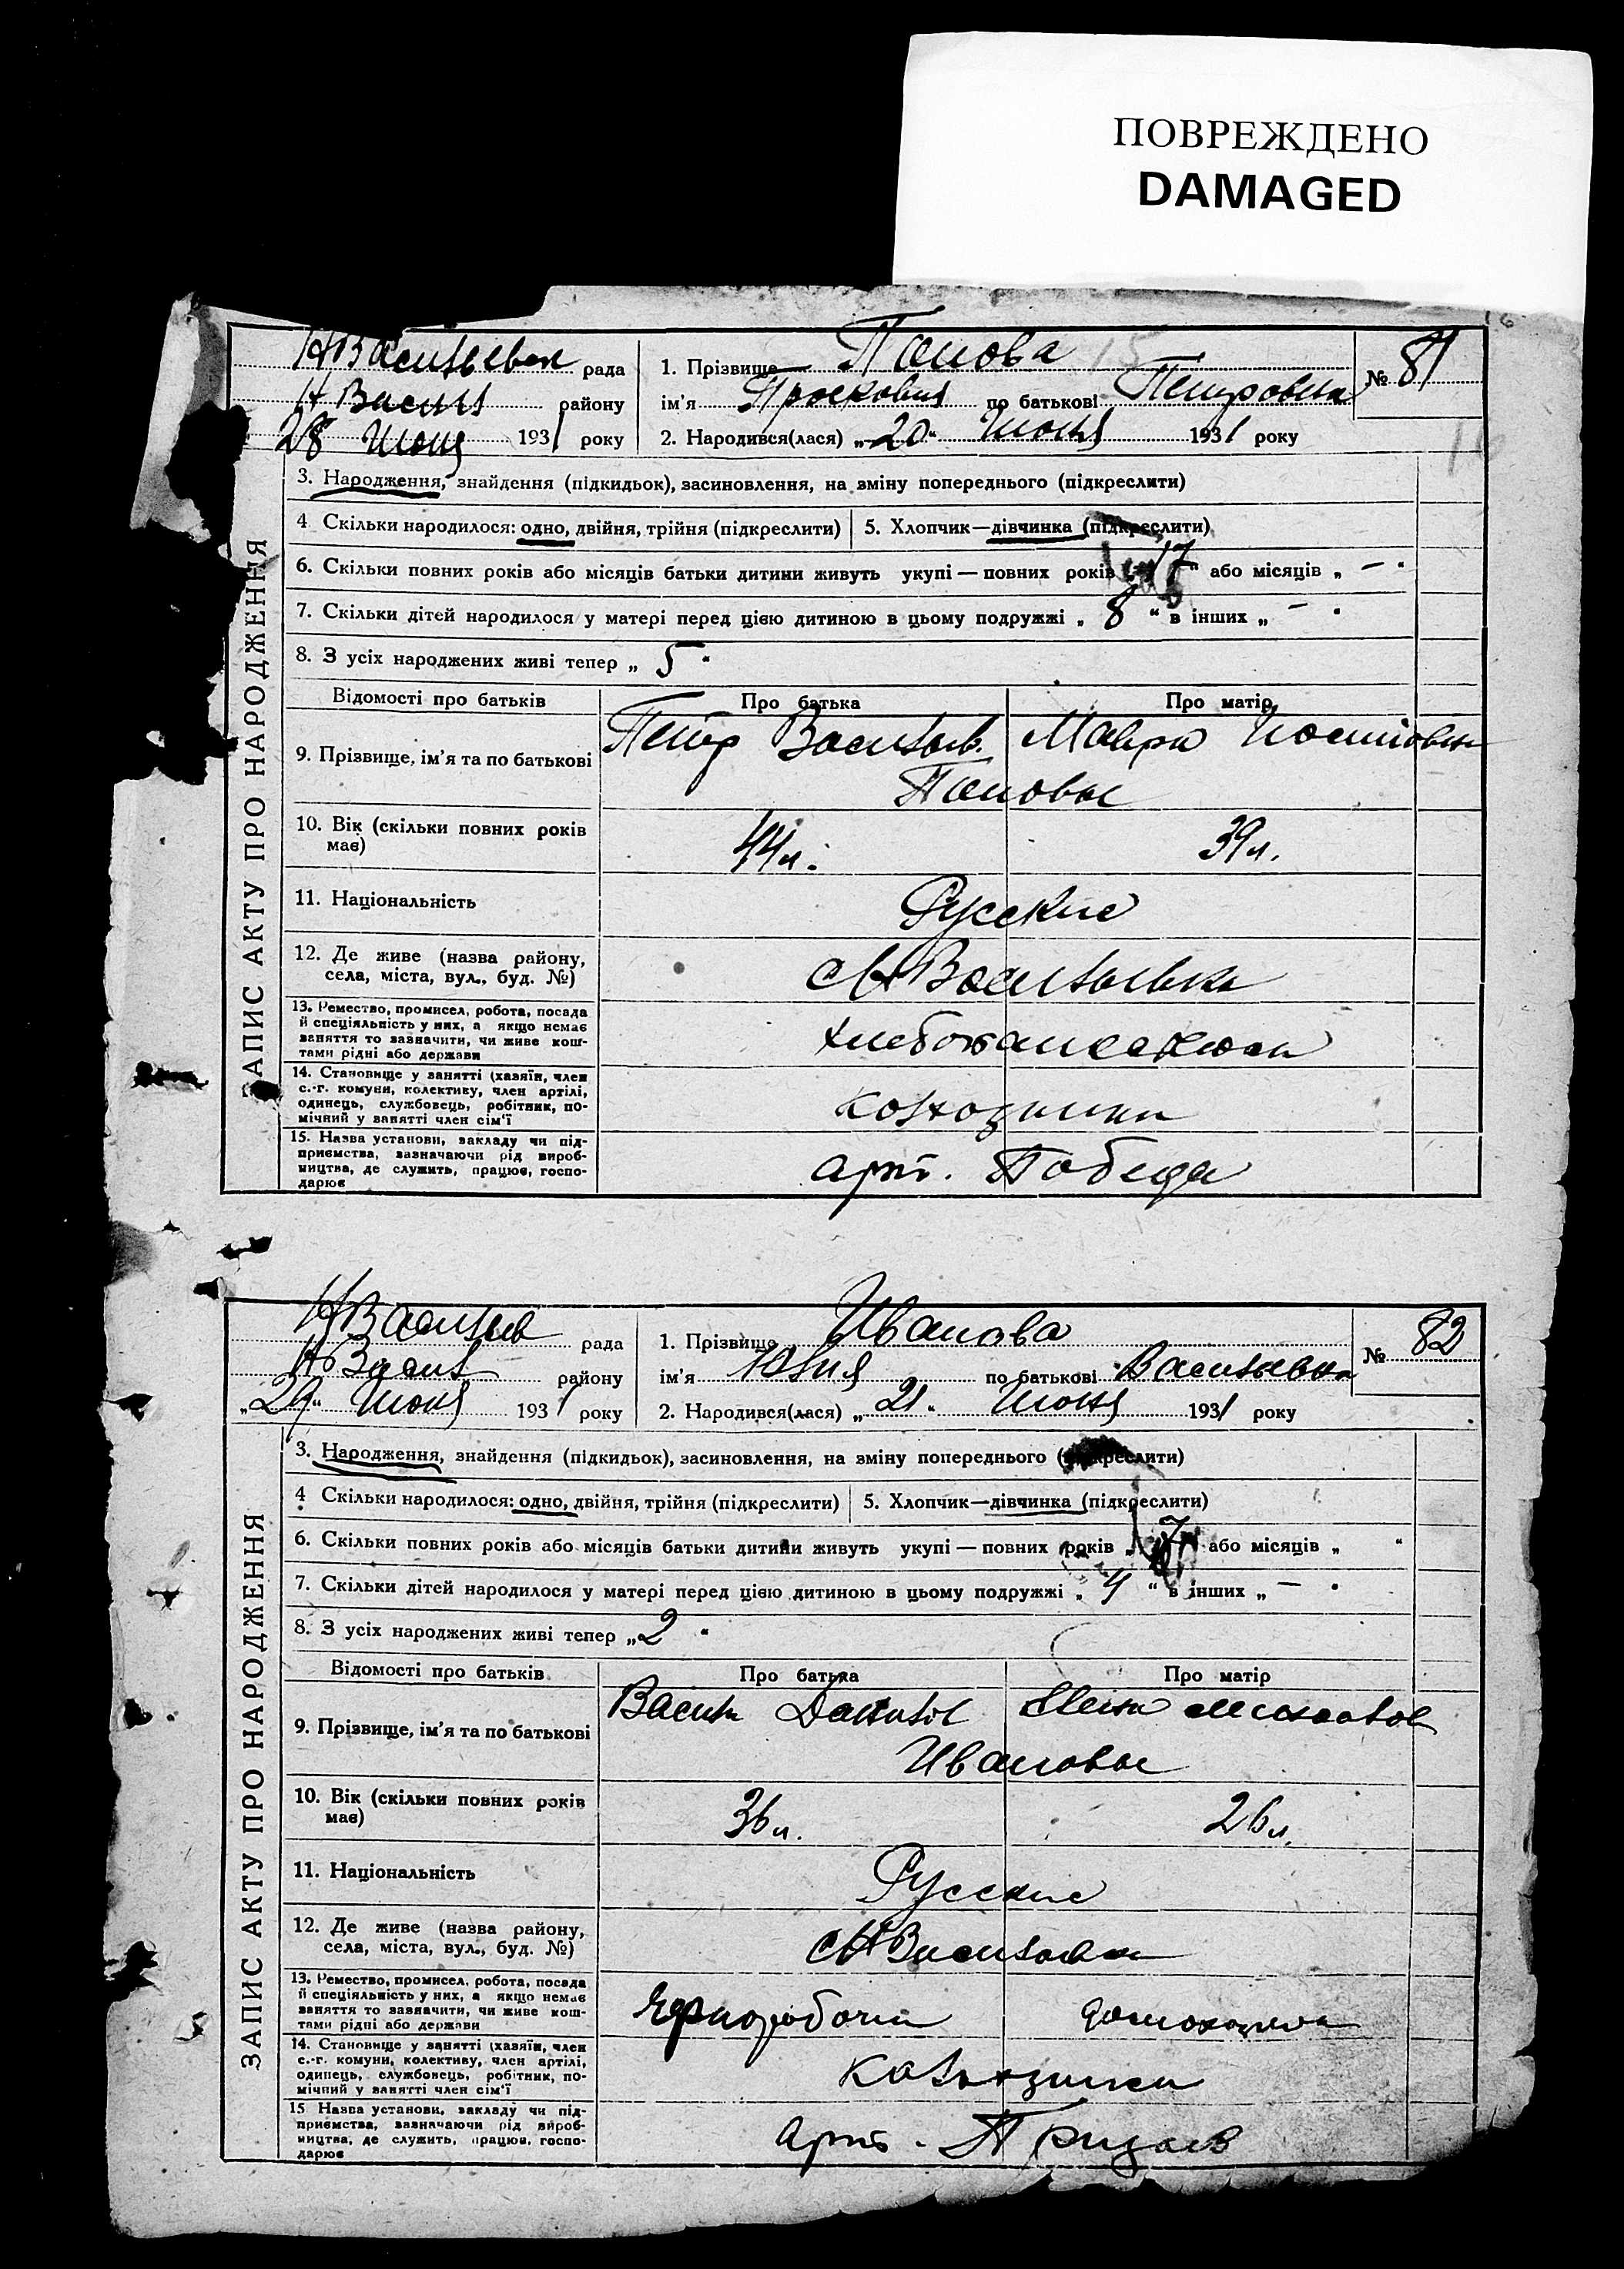 ПОВРЕЖДЕНО
DAMAGED
НВасильевск рада
Н Васил району
28 Июня 1931 року
1. Прізвище Попова
ім'я Просковия по батькові Петровна
2. Народився(лася) „20“ Июня 1931 року
№ 81
ЗАПИС АКТУ ПРО НАРОДЖЕННЯ
3. Народження, знайдення (підкидьок), засиновлення, на зміну попереднього (підкреслити)
4 Скільки народилося: одно, двійня, трійня (підкреслити)
5. Хлопчик—дівчинка (підкреслити)
6. Скільки повних років або місяців батьки дитини живуть укупі — повних років „17“ або місяців „ — “
7. Скільки дітей народилося у матері перед цією дитиною в цьому подружжі „ 8 “ в інших „ — “
8. З усіх народжених живі тепер „ 5 “
Відомості про батьків Про батька Про матір
9. Прізвище, ім'я та по батькові Петр Васильев. Мавра Иосиповна
Поповы
10. Вік (скільки повних років має) 44 л. 39 л.
11. Національність Русские
12. Де живе (назва району, села, міста, вул., буд. №) с Н Васильевка
13. Ремество, промисел, робота, посада
й спеціяльність у них, а якщо немає
заняття то зазначити, чи живе кош-
тами рідні або держави
14. Становище у занятті (хазяїн, член
с.-г. комуни, колективу, член артілі,
одинець, службовець, робітник, по-
мічний у занятті член сім'ї
колхозники
15. Назва установи, закладу чи під-
приємства, зазначаючи рід вироб-
ництва, де служить, працює, госпо-
дарює
арт. Победа
НВасильев рада
Н Васил району
„29“ Июня 1931 року
1. Прізвище Иванова
ім'я Юлия по батькові Васильевна
2. Народився(лася) „21“ Июня 1931 року
№ 82
ЗАПИС АКТУ ПРО НАРОДЖЕННЯ
3. Народження, знайдення (підкидьок), засиновлення, на зміну попереднього (підкреслити)
4 Скільки народилося: одно, двійня, трійня (підкреслити)
5. Хлопчик—дівчинка (підкреслити)
6. Скільки повних років або місяців батьки дитини живуть укупі — повних років „ 7 “ або місяців „ “
7. Скільки дітей народилося у матері перед цією дитиною в цьому подружжі „ 4 “ в інших „ — “
8. З усіх народжених живі тепер „2 “
Відомості про батьків Про батька Про матір
9. Прізвище, ім'я та по батькові Васил Данилов Елена
Ивановы
10. Вік (скільки повних років має) 36 л. 26 л.
11. Національність Русские
12. Де живе (назва району, села, міста, вул., буд. №) с Н Васильевка
13. Ремество, промисел, робота, посада
й спеціяльність у них, а якщо немає
заняття то зазначити, чи живе кош-
тами рідні або держави
Чернорабочий домохозяйка
14. Становище у занятті (хазяїн, член
с.-г. комуни, колективу, член артілі,
одинець, службовець, робітник, по-
мічний у занятті член сім'ї
колхозники
15 Назва установи, закладу чи під-
приємства, зазначаючи рід вироб-
ництва, де служить, працює, госпо-
дарює
арт.